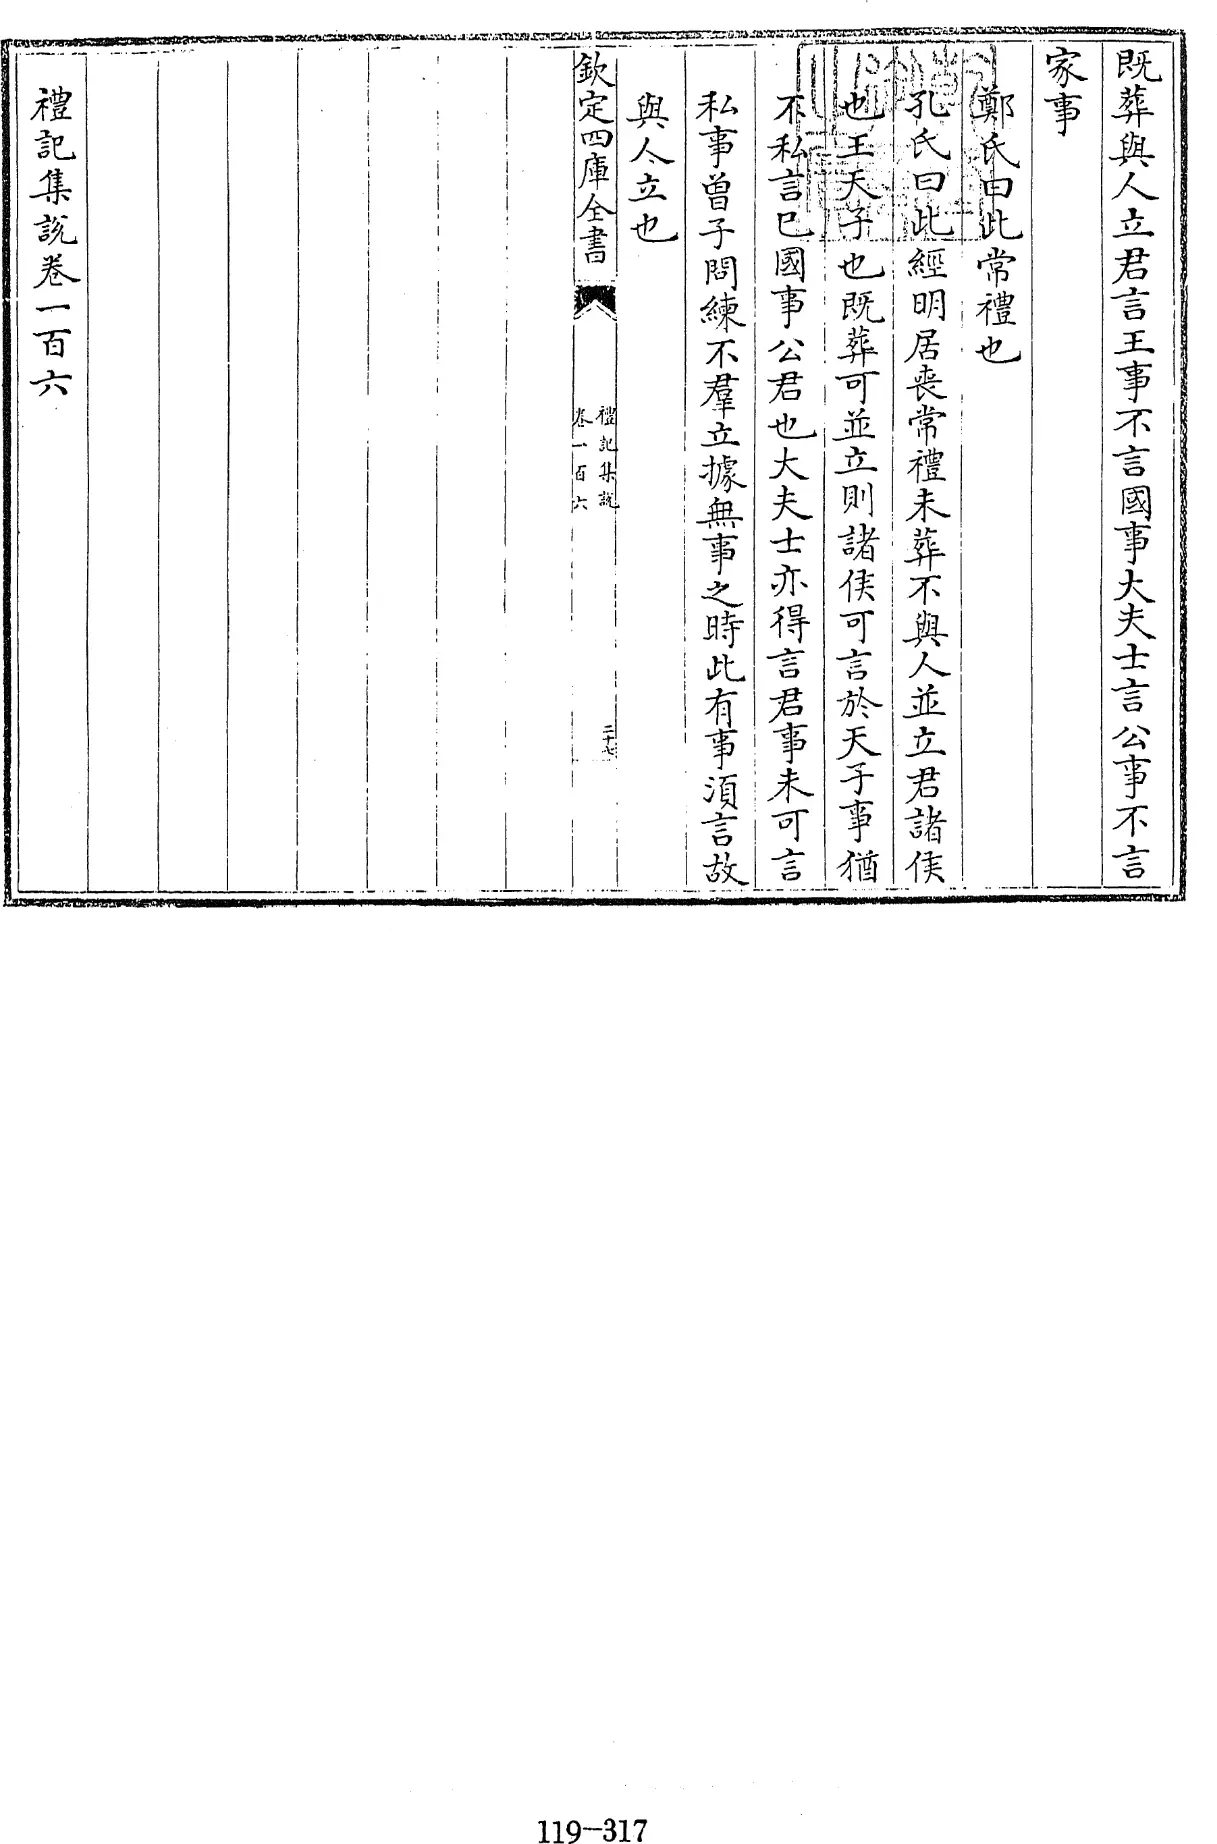 既葬與人立君言王事不言國事大夫士言公事不言
家事
鄭氏曰此常禮也
孔氏曰此經明居喪常禮未葬不與人並立君諸侯
也王天子也既葬可並立則諸侯可言於天子事猶
不私言已國事公君也大夫士亦得言君事未可言
私事曾子問練不羣立據無事之時此有事湏言故
與人立也
欽定四庫全書
禮記集說
卷一百六
二十七
禮記集說卷一百六
119-317